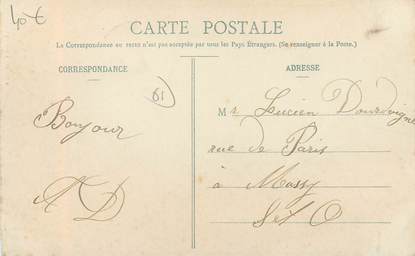 40€
CARTE POSTALE
La Correspondance au recto n'est pas acceptée par tous les Pays Étrangers. (Se renseigner à la Poste.)
CORRESPONDANCE
ADRESSE
81
Bonjour
A D
Mr Lucien
rue de Paris
à Massy
S et O